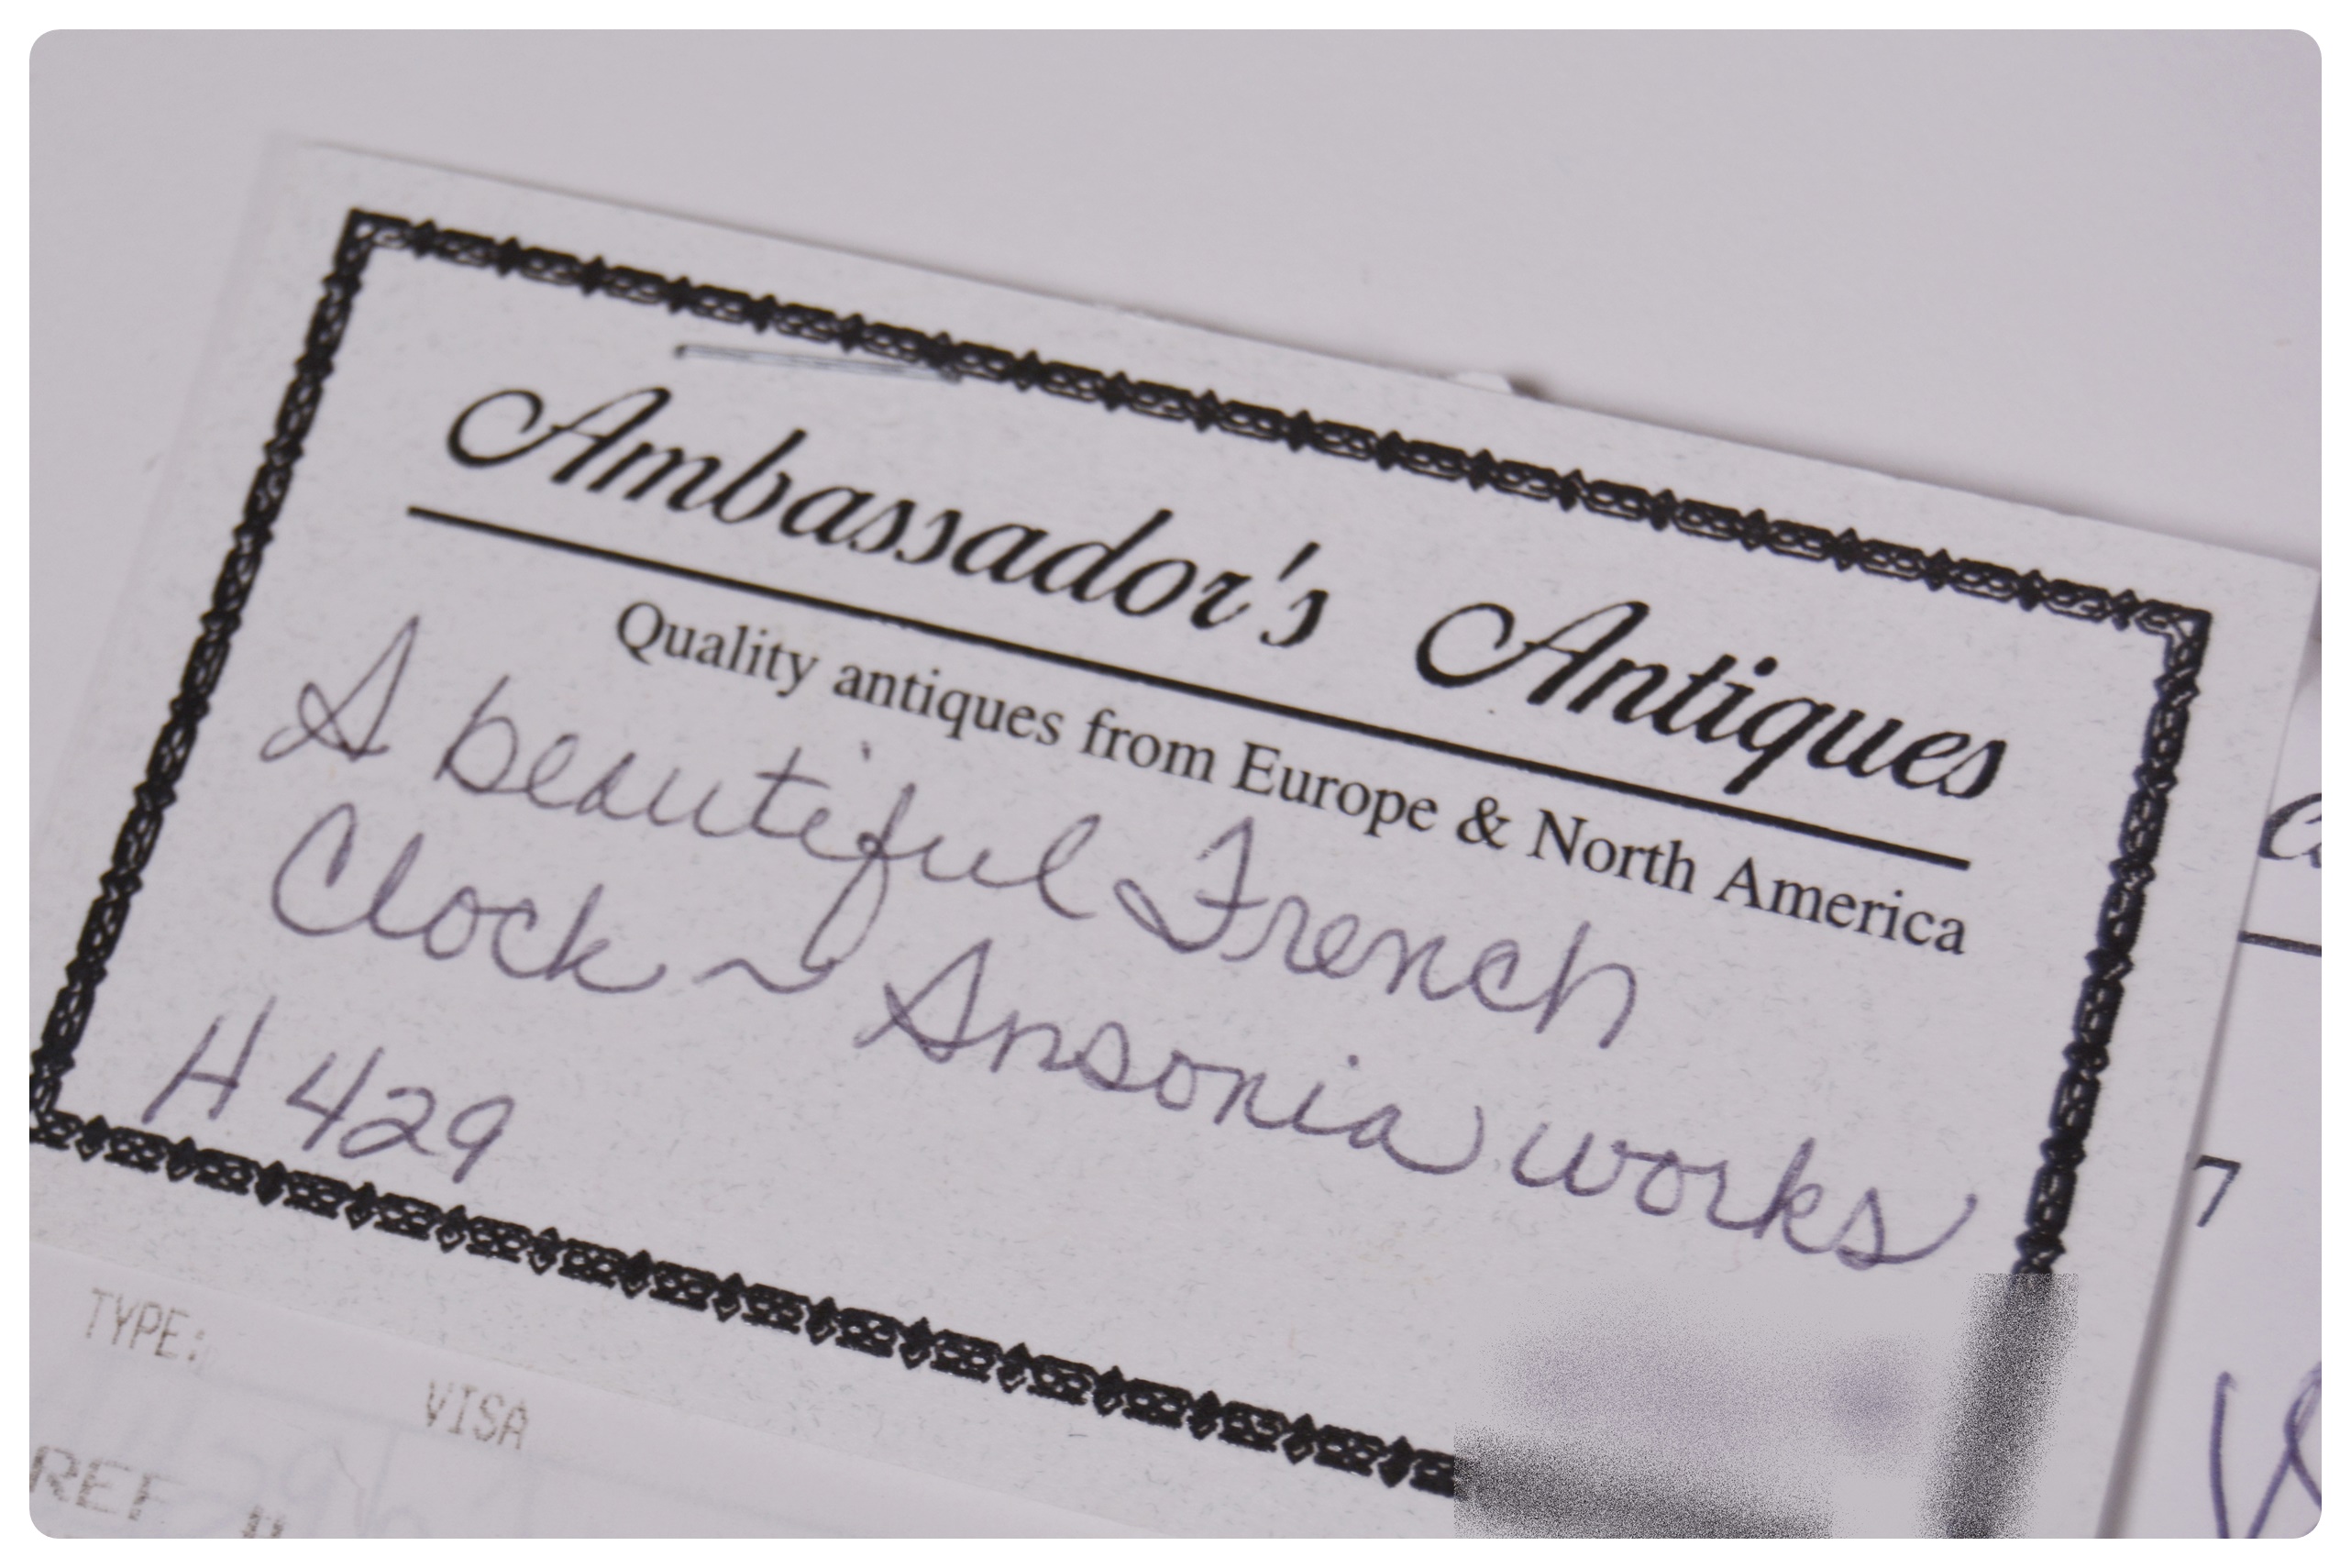 Ambassador's Antiques
Quality antiques from Europe & North America
A beautiful French
Clock ~ Ansonia works
H 429
TYPE:
VISA
REF
7